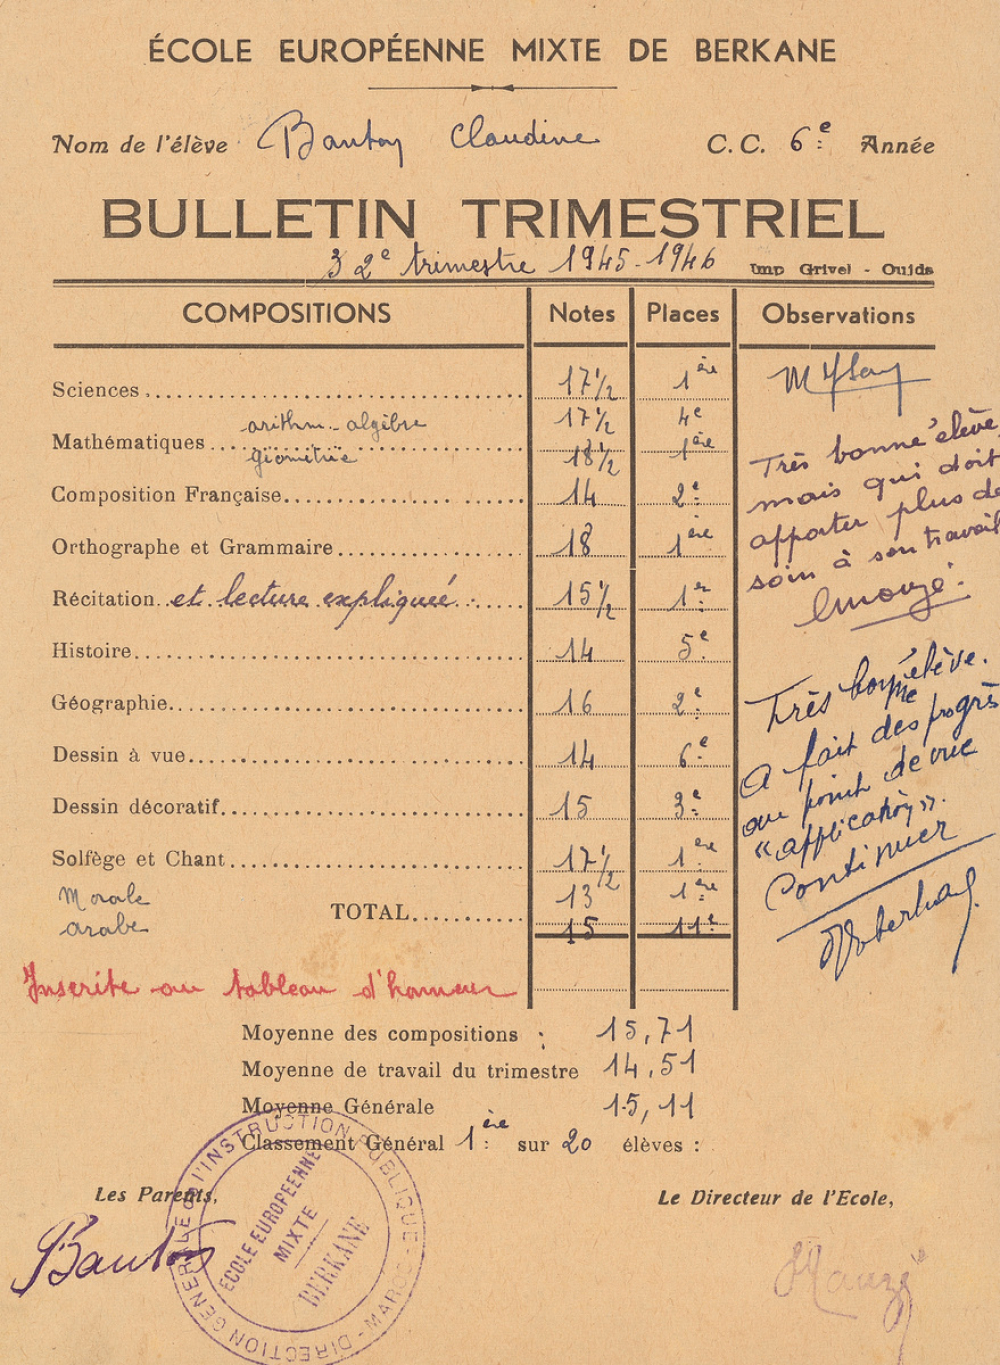 ÉCOLE EUROPÉENNE MIXTE DE BERKANE
Nom de l'élève Claudine C.C. 6e Année
BULLETIN TRIMESTRIEL
2e trimestre 1945-1946 Imp Grivel - Oujda
COMPOSITIONS Notes Places Observations
Sciences 17 1/2 1ère
Mathématiques arithm. algèbre 17 1/2 4e
géométrie 18 1/2 1ère
Composition Française 14 2e
Orthographe et Grammaire 18 1ère
Récitation et lecture expliquée 15 1/2 1re
Histoire 14 5e
Géographie 16 2e
Dessin à vue 14 6e
Dessin décoratif 15 3e
Solfège et Chant 17 1/2 1ère
Morale 13 1ère
TOTAL
arabe 15 11e
Très bonne élève
mais qui doit
apporter plus de
soin à son travail
Très bonne élève.
A fait des progrès
au point de vue
"application".
Continuer
Inscrite au tableau d'honneur
Moyenne des compositions : 15,71
Moyenne de travail du trimestre 14,51
Moyenne Générale 15,11
Classement Général 1ère sur 20 élèves :
Les Parents, Le Directeur de l'Ecole,
DIRECTION GÉNÉRALE DE l'INSTRUCTION PUBLIQUE - MAROC -
ECOLE EUROPÉENNE
MIXTE
BERKANE